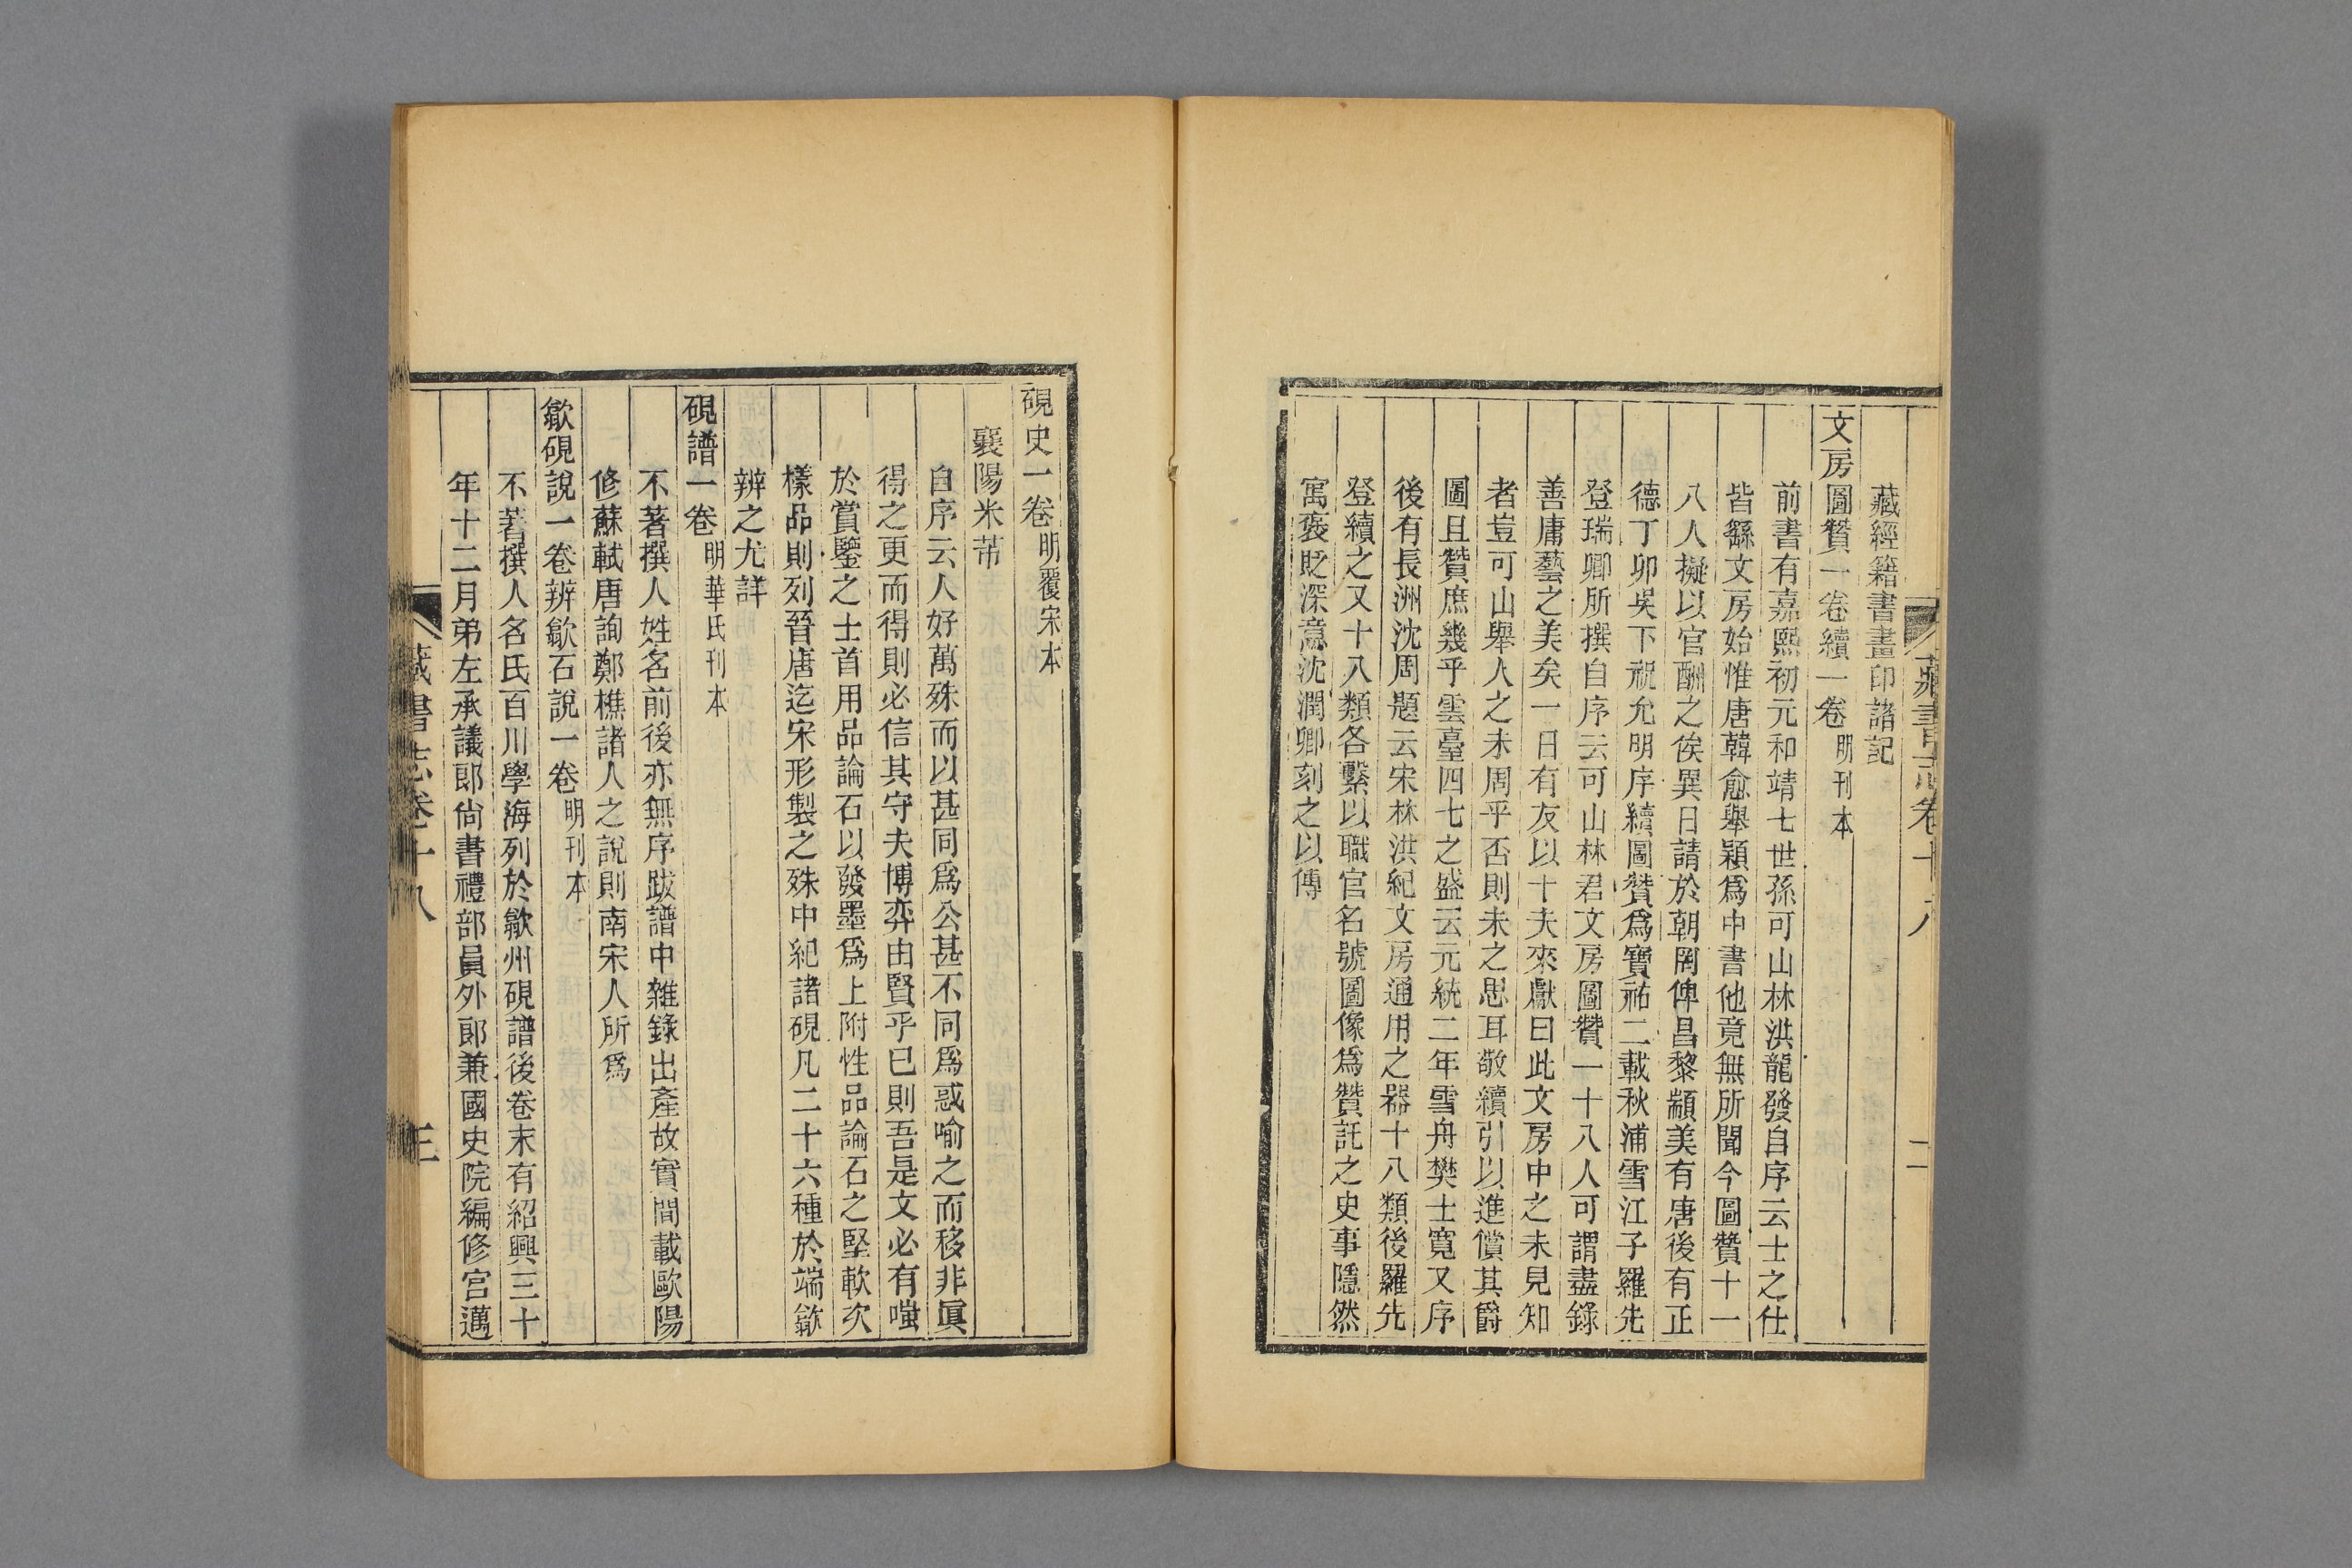 藏書志卷十八
二
藏經籍書畫印諸記
文房圖贊一卷續一卷明刊本
前書有嘉熙初元和靖七世孫可山林洪龍發自序云士之仕
皆繇文房始惟唐韓愈舉穎爲中書他竟無所聞今圖贊十一
八人擬以官酬之俟異日請於朝罔俾昌黎顓美有唐後有正
德丁卯吳下祝允明序續圖贊爲寶祐二載秋浦雪江子羅先
登瑞卿所撰自序云可山林君文房圖贊一十八人可謂盡錄
善庸藝之美矣一日有友以十夫來獻曰此文房中之未見知
者豈可山舉人之未周乎否則未之思耳敬續引以進償其爵
圖且贊庶幾乎雲臺四七之盛云元統二年雪舟樊士寬又序
後有長洲沈周題云宋林洪紀文房通用之器十八類後羅先
登續之又十八類各繫以職官名號圖像爲贊託之史事隱然
寓褒貶深意沈潤卿刻之以傳
硯史一卷明覆宋本
襄陽米芾
自序云人好萬殊而以甚同爲公甚不同爲惑喻之而移非眞
得之更而得則必信其守夫博弈由賢乎已則吾是文必有嗤
於賞鑒之士首用品論石以發墨爲上附性品論石之堅軟次
樣品則列晉唐迄宋形製之殊中紀諸硯凡二十六種於端歙
辨之尤詳
硯譜一卷明華氏刊本
不著撰人姓名前後亦無序跋譜中雜錄出產故實間載歐陽
修蘇軾唐詢鄭樵諸人之說則南宋人所爲
歙硯說一卷辨歙石說一卷明刊本
不著撰人名氏百川學海列於歙州硯譜後卷末有紹興三十
年十二月弟左承議郎尙書禮部員外郎兼國史院編修官邁
藏書志卷十八
三